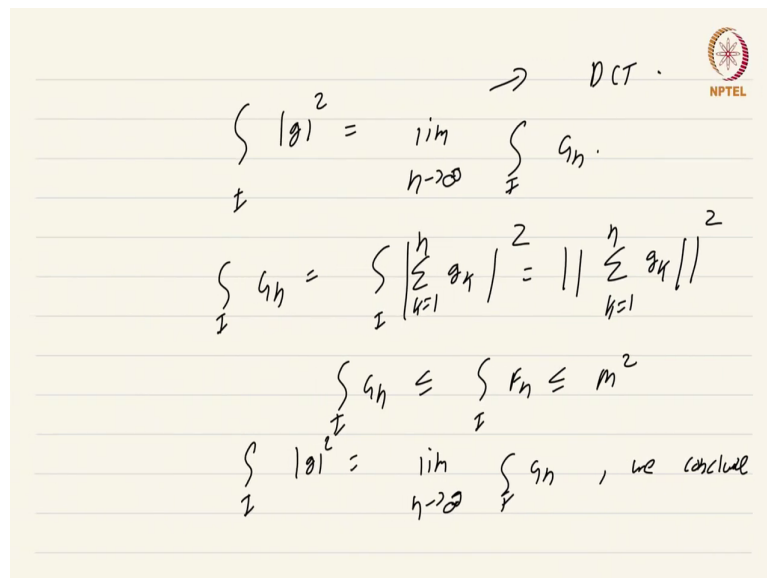 → DCT.
NPTEL
∫_I |g|² = lim_{n→∞} ∫_I Gn.
∫_I Gn = ∫_I |∑_{k=1}^{n} gk|² = ||∑_{k=1}^{n} gk||²
∫_I Gn ≤ ∫_I Fn ≤ m²
∫_I |g|² = lim_{n→∞} ∫_I Gn, we conclude